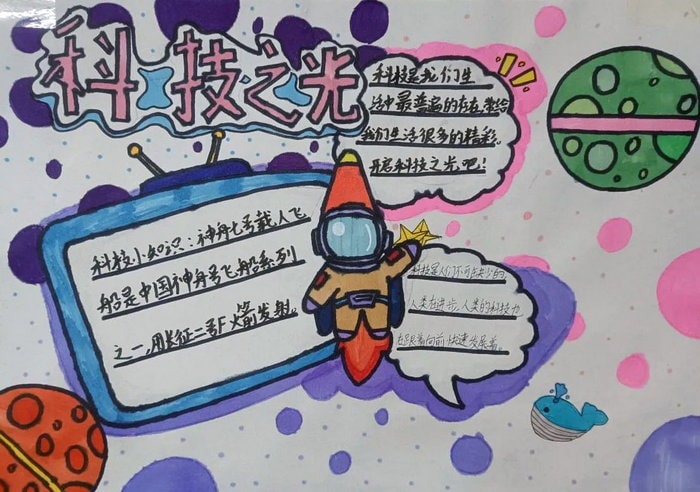 科技之光
科技是我们生
活中最普遍的存在,带给
我们生活很多的精彩。
开启科技之光吧!
科技小知识:神舟七号载人飞
船是中国神舟号飞船系列
之一,用长征二号F火箭发射。
科技是人们不可或缺少的,
人类在进步,人类的科技力
在跟着向前快速发展着。